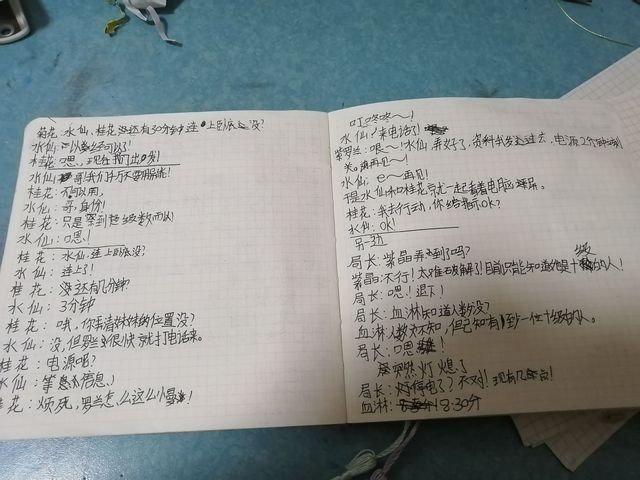 菊花：水仙、桂花 还有30分钟连上卧底没？
水仙：已经可以了！
桂花：嗯，现在我们出发！
水仙：哥我们斤不要用
桂花：不可以用，
水仙：哥，身价！
桂花：只是察到超级数而以
水仙：嗯！
桂花：水仙，连上卧底没？
水仙：连上了！
桂花：还有几分钟？
水仙：3分钟
桂花：哦，你弄清妹妹的位置没？
水仙：没，但罗兰很快就打电话来。
桂花：电源呢？
水仙：等信息、
桂花：烦死，罗兰怎么这么小
叮咚咚～！
水仙：来电话了
紫罗兰：喂～！水仙，弄好了，资料我发送过去，电源2个
关，再见～！
水仙：e～再见！
于是水仙和桂花就一起看着电脑
桂花：我去行动，你给指示OK？
水仙：OK！
另一边
局长：紫晶弄到了吗？
紫晶：不行！太难破解了！目前只能知道他是十级的人！
局长：嗯！退下！
局长：血淋知道人数没？
血淋：人数不知，但已知有到一位十级的人。
局长：嗯！
突然灯熄了
局长：灯停电了？不对！现有几点？
血淋：8:30分